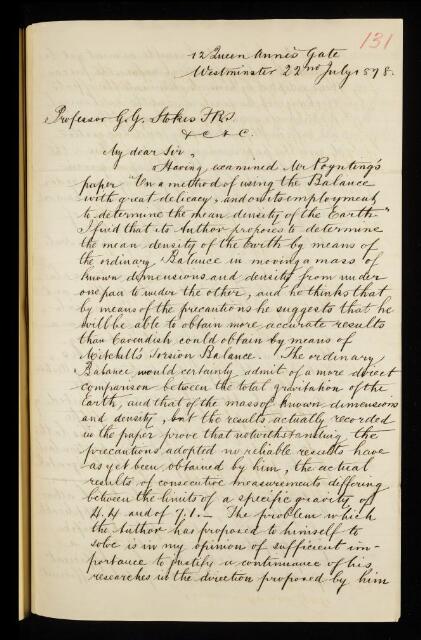 131
12 Queen Anne's Gate
Westminster 22nd July 1878.
Professor G. G. Stokes FRS.
&c &c.
My dear Sir,
Having examined Mr Poynting's
paper "On a method of using the Balance
with great delicacy, and on its employment
to determine the mean density of the Earth"
I find that its Author proposes to determine
the mean density of the Earth by means of
the ordinary Balance in moving a mass of
known dimensions and density from under
one pan to under the other, and he thinks that
by means of the precautions he suggests that he
will be able to obtain more accurate results
than Cavendish could obtain by means of
Mitchell's Torsion Balance. The ordinary
Balance would certainly admit of a more direct
comparison between the total gravitation of the
Earth, and that of the mass of known dimensions
and density, but the results actually recorded
in the paper prove that notwithstanding the
precautions adopted no reliable results have
as yet been obtained by him, the actual
results of consecutive measurements differing
between the limits of a specific gravity of
4.4 and of 7.1. — The problem which
the Author has proposed to himself to
solve is in my opinion of sufficient im-
portance to justify a continuance of his
researches in the direction proposed by him